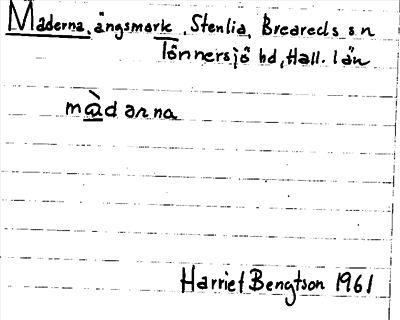 Maderna, ängsmark, Stenlia, Breareds sn
Tönnersjö hd, Hall. län
màdarna
Harriet Bengtson 1961